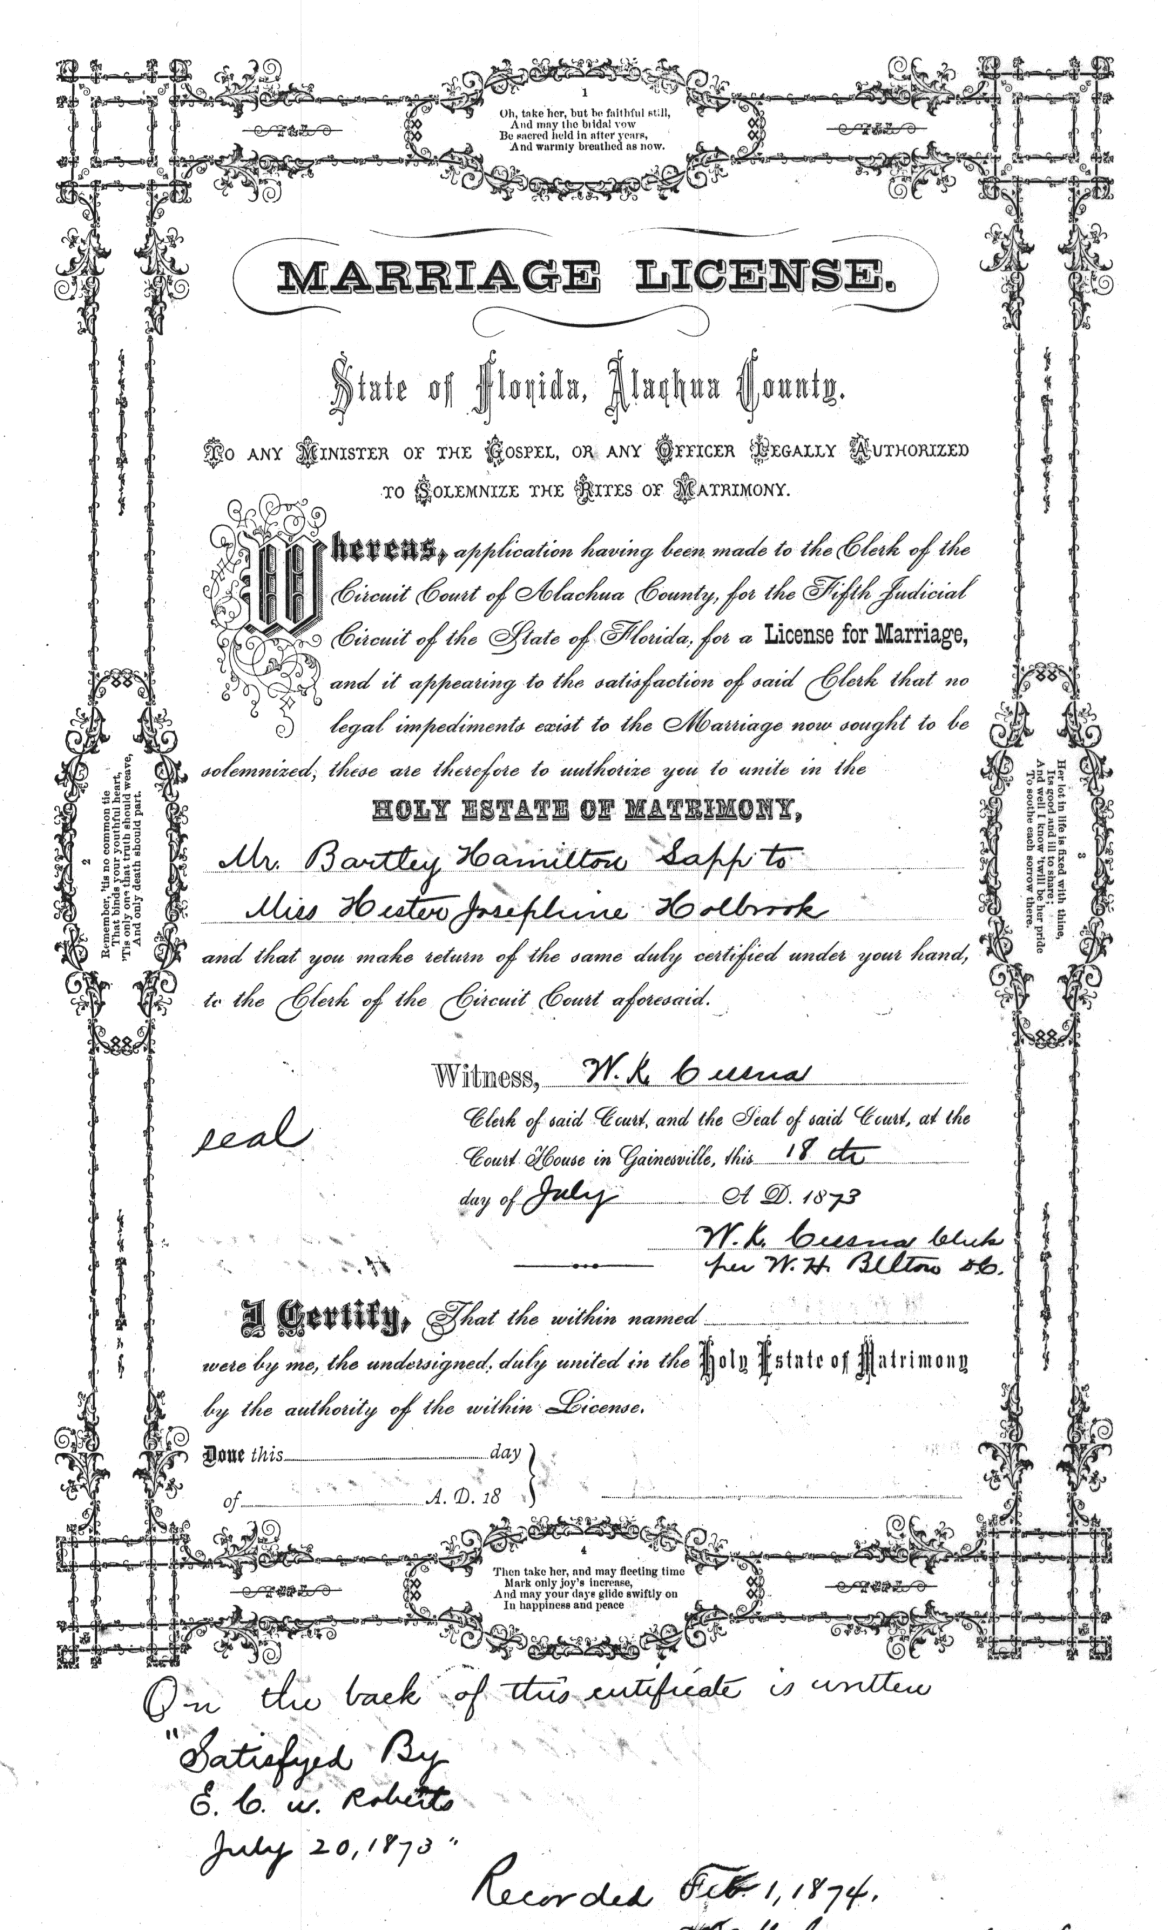 1
Oh, take her, but be faithful still,
And may the bridal vow
Be sacred held in after years,
And warmly breathed as now.
MARRIAGE LICENSE.
State of Florida, Alachua County.
TO ANY MINISTER OF THE GOSPEL, OR ANY OFFICER LEGALLY AUTHORIZED
TO SOLEMNIZE THE RITES OF MATRIMONY.
Whereas, application having been made to the Clerk of the
Circuit Court of Alachua County, for the Fifth Judicial
Circuit of the State of Florida, for a License for Marriage,
and it appearing to the satisfaction of said Clerk that no
legal impediments exist to the Marriage now sought to be
solemnized, these are therefore to authorize you to unite in the
HOLY ESTATE OF MATRIMONY,
Mr. Bartley Hamilton Sapp to
Miss Hester Josephine Holbrook
and that you make return of the same duly certified under your hand,
to the Clerk of the Circuit Court aforesaid.
2
Remember, 'tis no common tie
That binds your youthful heart,
'Tis only one that truth should weave,
And only death should part.
3
Her lot in life is fixed with thine,
Its good and ill to share;
And well I know 'twill be her pride
To soothe each sorrow there.
Witness, W. K. Cessna
seal
Clerk of said Court, and the Seal of said Court, at the
Court House in Gainesville, this 18 th
day of July A. D. 1873
W. K. Cessna Clerk
per W. H. Belton DC.
I Certify, That the within named
were by me, the undersigned, duly united in the Holy Estate of Matrimony
by the authority of the within License.
Done this day
of A. D. 18
4
Then take her, and may fleeting time
Mark only joy's increase,
And may your days glide swiftly on
In happiness and peace
On the back of this certificate is written
"Satisfyed By
E. C. W. Roberts
July 20, 1873"
Recorded Feb. 1, 1874.